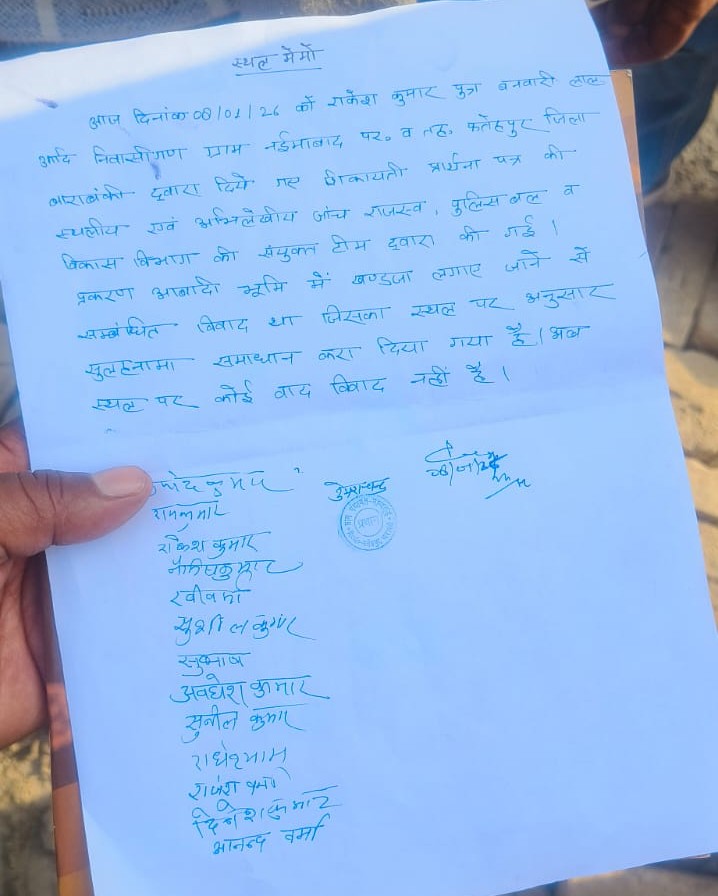 स्थल मेमो
आज दिनांक 08/01/26 को राकेश कुमार पुत्र बनवारी लाल
आदि निवासीगण ग्राम नईमाबाद पर० व तह० फतेहपुर जिला
बाराबंकी द्वारा दिये गए शिकायती प्रार्थना पत्र की
स्थलीय एवं अभिलेखीय जांच राजस्व, पुलिस बल व
विकास विभाग की संयुक्त टीम द्वारा की गई।
प्रकरण आबादी भूमि में खण्डजा लगाए जाने से
सम्बंधित विवाद था जिसका स्थल पर अनुसार
सुलहनामा समाधान करा दिया गया है। अब
स्थल पर कोई वाद विवाद नहीं है।
कुमार
रामकुमार
राकेश कुमार
रवी वर्मा
सुशील कुमार
सुभाष
अवधेश कुमार
सुनील कुमार
राधेश्याम
वर्मा
दिनेश कुमार
आनन्द वर्मा
प्रधान